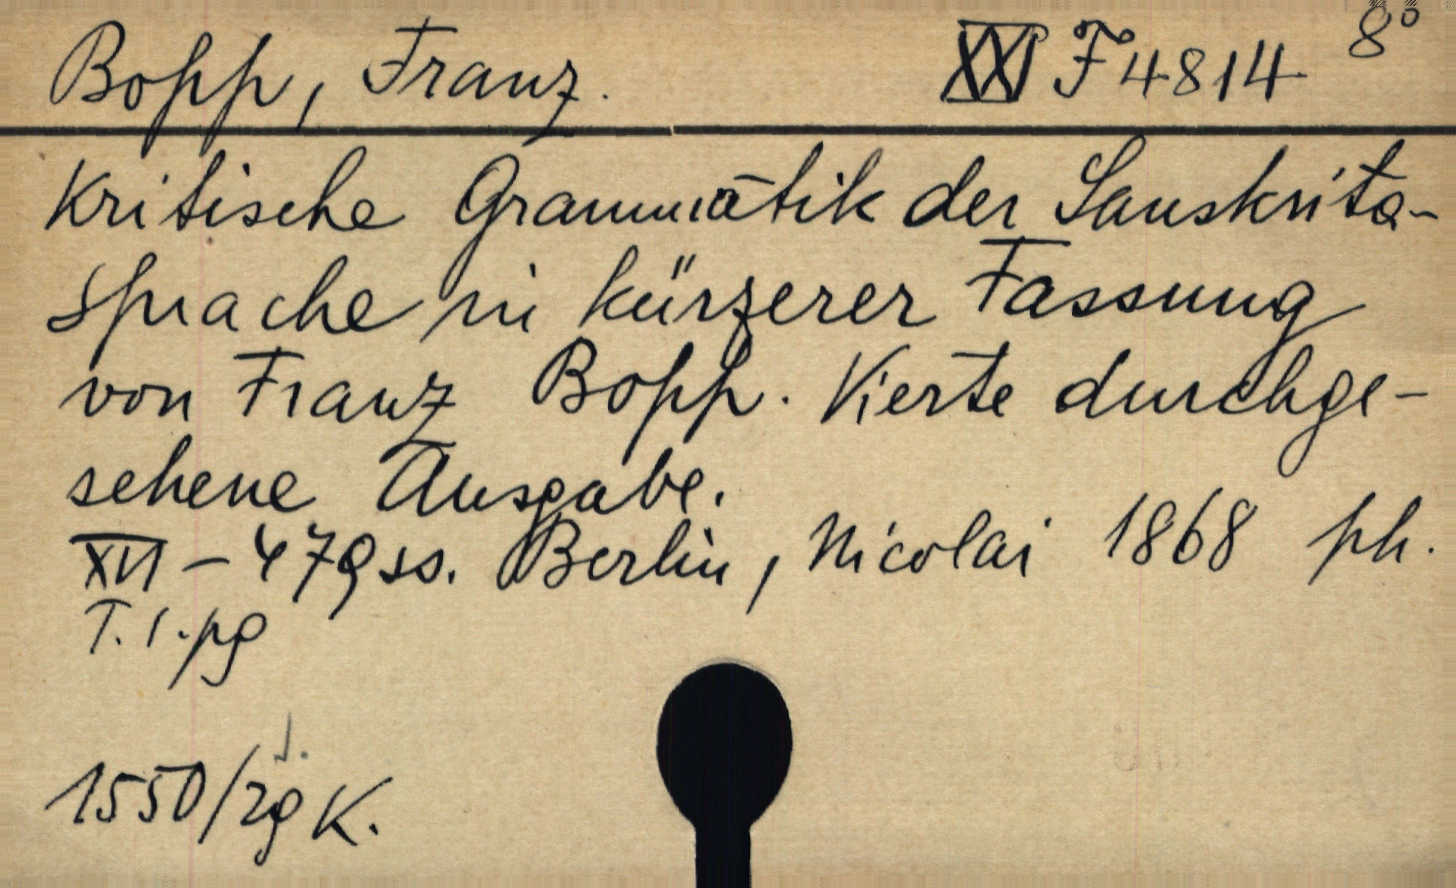 Bopp, Franz. XXI F 4814 8°
Kritische Grammatik der Sanskrita-
Sprache in kürzerer Fassung
von Franz Bopp. Vierte durchge-
sehene Ausgabe.
XVI - 479 ss. Berlin, Nicolai 1868 ph.
T. 1. pg
J.
1550/29 K.